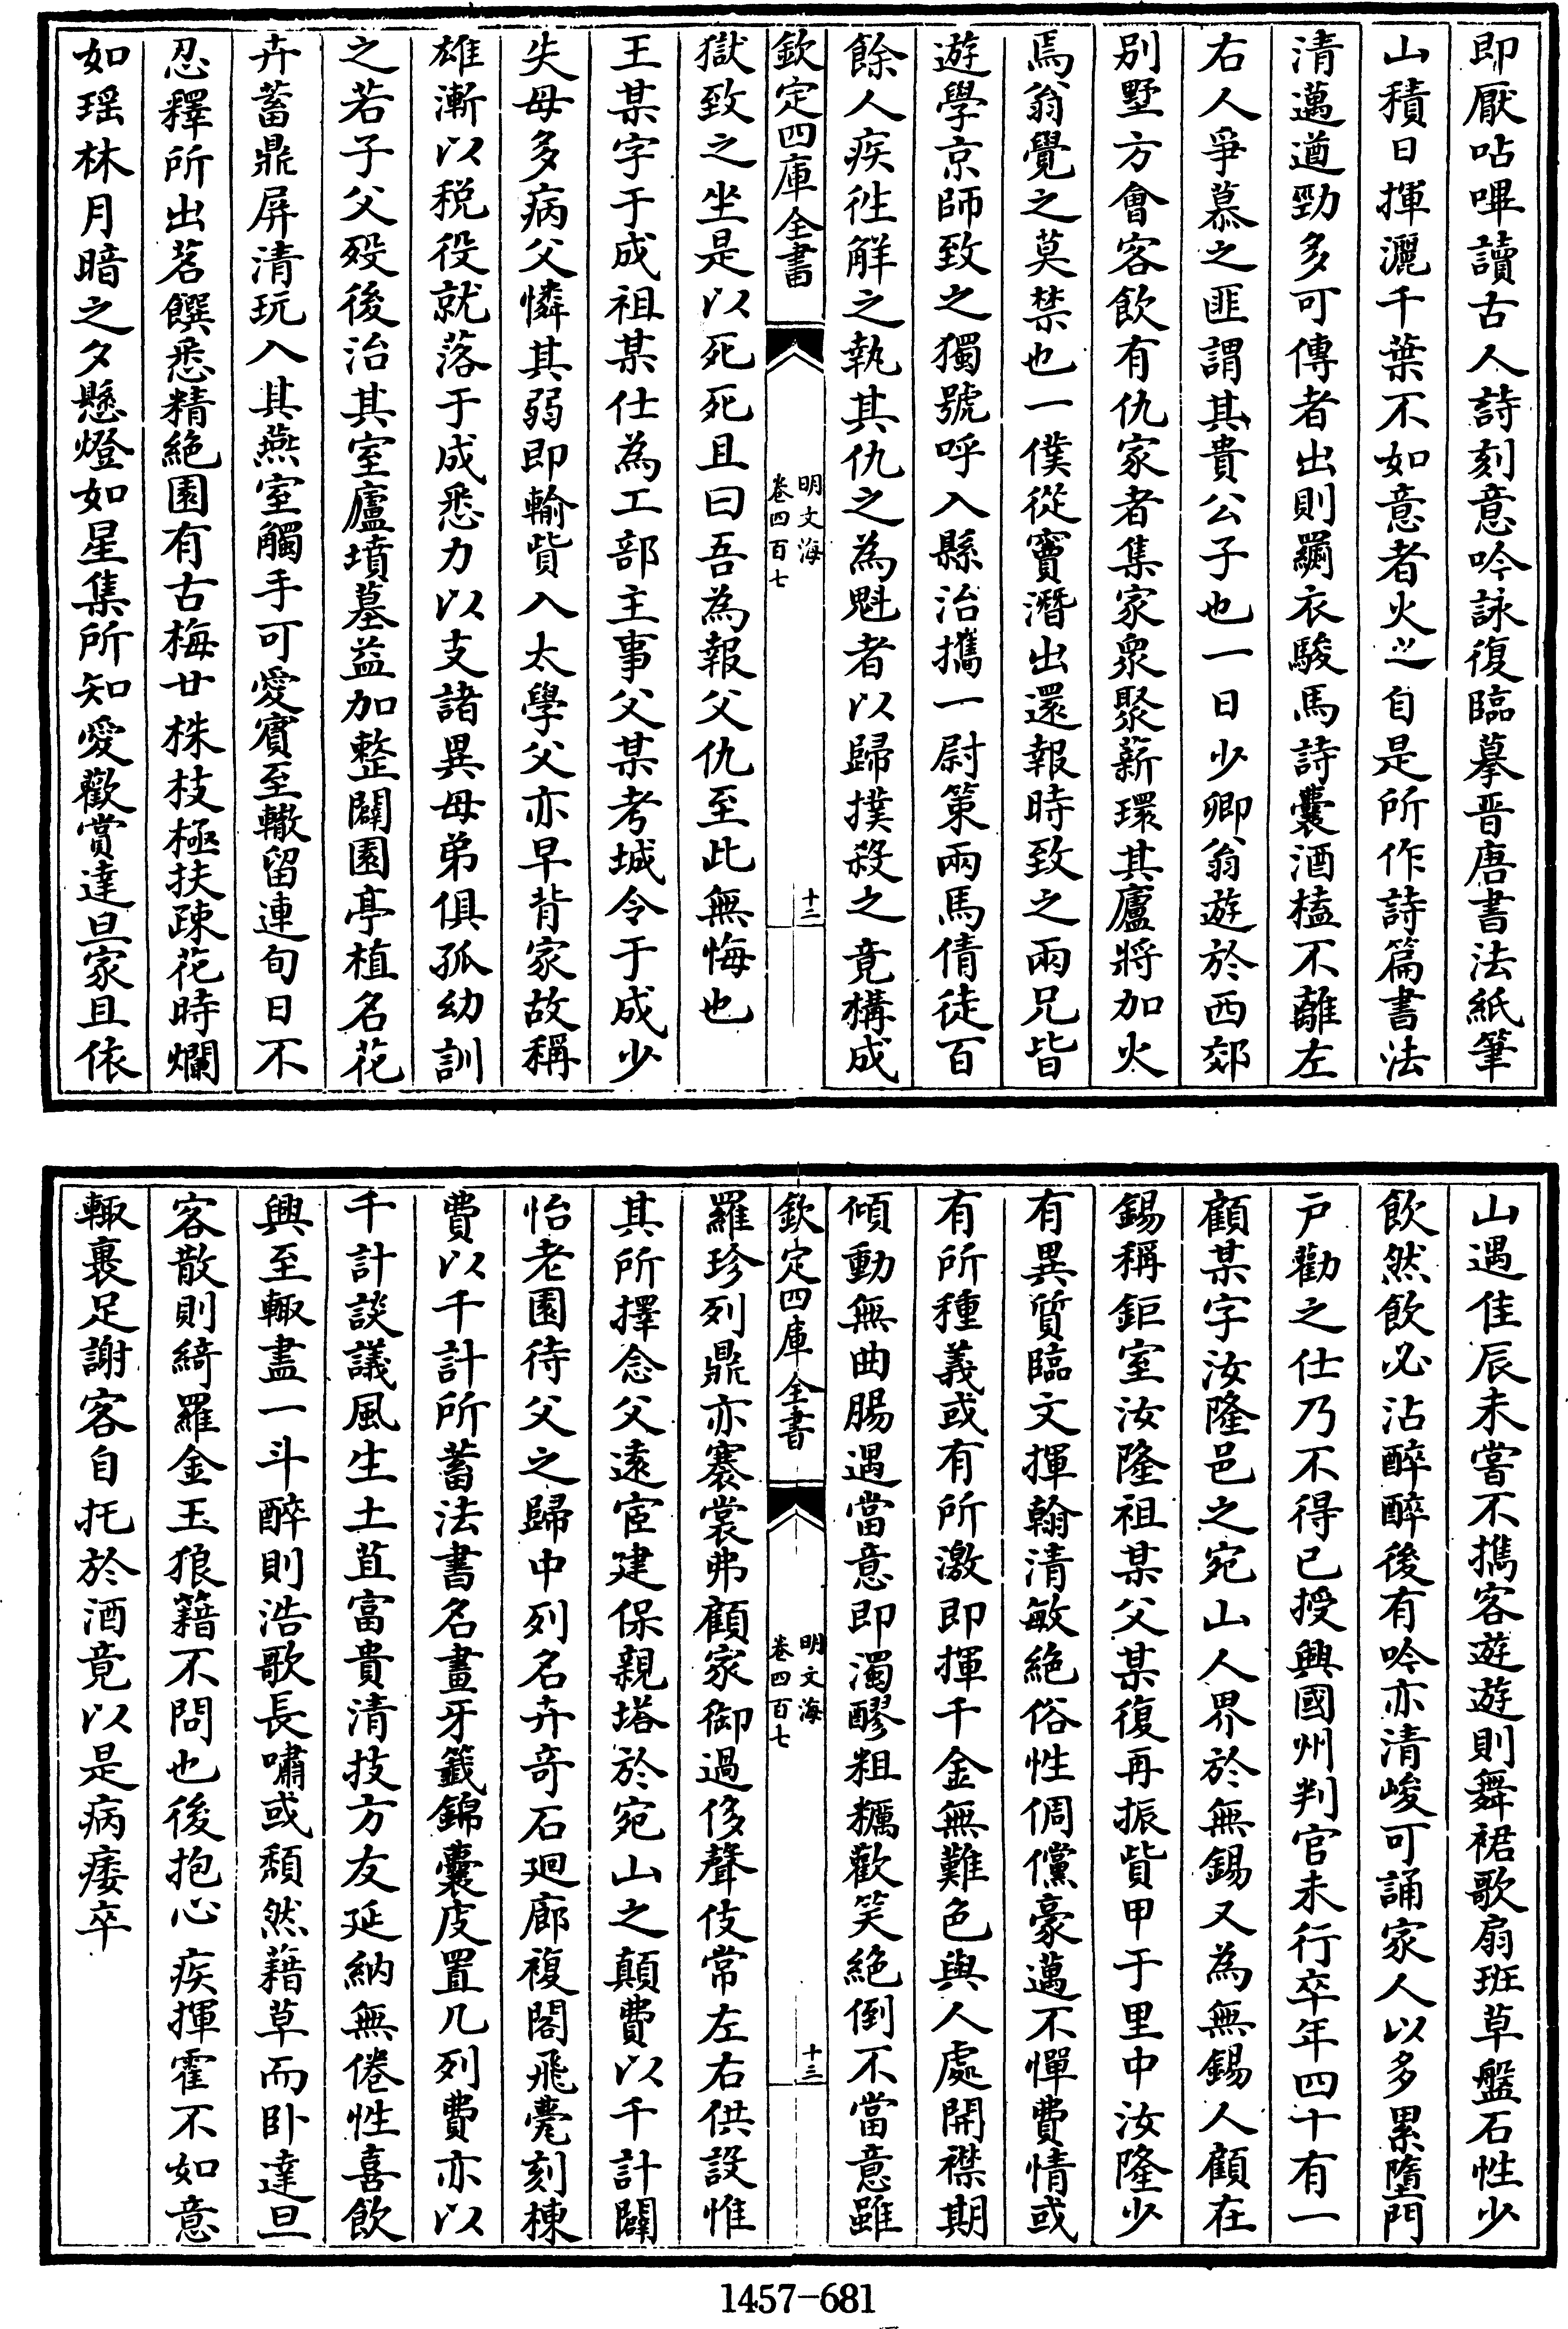 即厭呫嗶讀古人詩刻意吟詠復臨摹晉唐書法紙筆
山積日揮灑千葉不如意者火之自是所作詩篇書法
清邁遒勁多可傳者出則𦆯衣駿馬詩囊酒榼不離左
右人爭慕之匪謂其貴公子也一日少卿翁遊於西郊
别墅方會客飲有仇家者集家衆聚薪環其廬將加火
焉翁覺之莫禁也一僕從竇潛出還報時致之兩兄皆
遊學京師致之獨號呼入縣治攜一尉策兩馬倩徒百
餘人疾徃解之執其仇之為魁者以歸撲殺之竟構成
欽定四庫全書
明文海
卷四百七
十二
獄致之坐是以死死且曰吾為報父仇至此無悔也
王某字于成祖某仕為工部主事父某考城令于成少
失母多病父憐其弱即輸貲入太學父亦早背家故稱
雄漸以税役就落于成悉力以支諸異母弟俱孤幼訓
之若子父殁後治其室廬墳墓益加整闢園亭植名花
卉蓄鼎屏清玩入其燕室觸手可愛賓至轍留連旬日不
忍釋所出茗饌悉精絶園有古梅廿株枝極扶疎花時爛
如瑶林月暗之夕懸燈如星集所知愛歡賞達旦家且依
山遇佳辰未嘗不攜客遊遊則舞裙歌扇班草盤石性少
飲然飲必沾醉醉後有吟亦清峻可誦家人以多累墮門
户勸之仕乃不得已授興國州判官未行卒年四十有一
顧某字汝隆邑之宛山人界於無錫又為無錫人顧在
錫稱鉅室汝隆祖某父某復再振貲甲于里中汝隆少
有異質臨文揮翰清敏絶俗性倜儻豪邁不憚費情或
有所種義或有所激即揮千金無難色與人處開襟期
傾動無曲腸遇當意即濁醪粗糲歡笑絶倒不當意雖
欽定四庫全書
明文海
卷四百七
十三
羅珍列鼎亦褰裳弗顧家御過侈聲伎常左右供設惟
其所擇念父逺宦建保親塔於宛山之顛費以千計闢
怡老園待父之歸中列名卉竒石廻廊複閣飛甍刻棟
費以千計所蓄法書名畫牙籤錦囊庋置几列費亦以
千計談議風生土苴富貴清技方友延納無倦性喜飲
興至輙盡一斗醉則浩歌長嘯或頽然藉草而卧達旦
客散則綺羅金玉狼籍不問也後抱心疾揮霍不如意
輙裹足謝客自托於酒竟以是病痿卒
1457-681